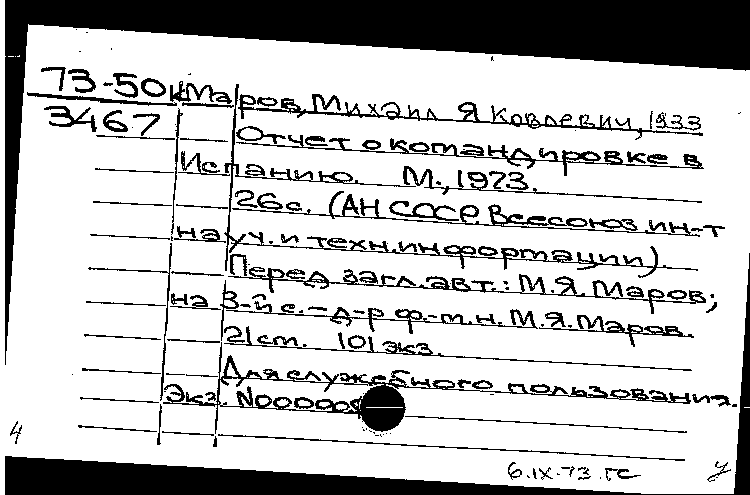 73-50к Маров, Михаил Яковлевич, 1933
3467
Отчет о командировке в
Испанию. М., 1973.
26с. (АН СССР. Всесоюз. ин-т
науч. и техн. информации).
Перед загл. авт.: М.Я. Маров;
на 3-й с. - д-р ф.-м.н. М.Я. Маров.
21 см. 101 экз.
Для служебного пользования.
Экз. N000005
4
6.IX.73. ГС
У